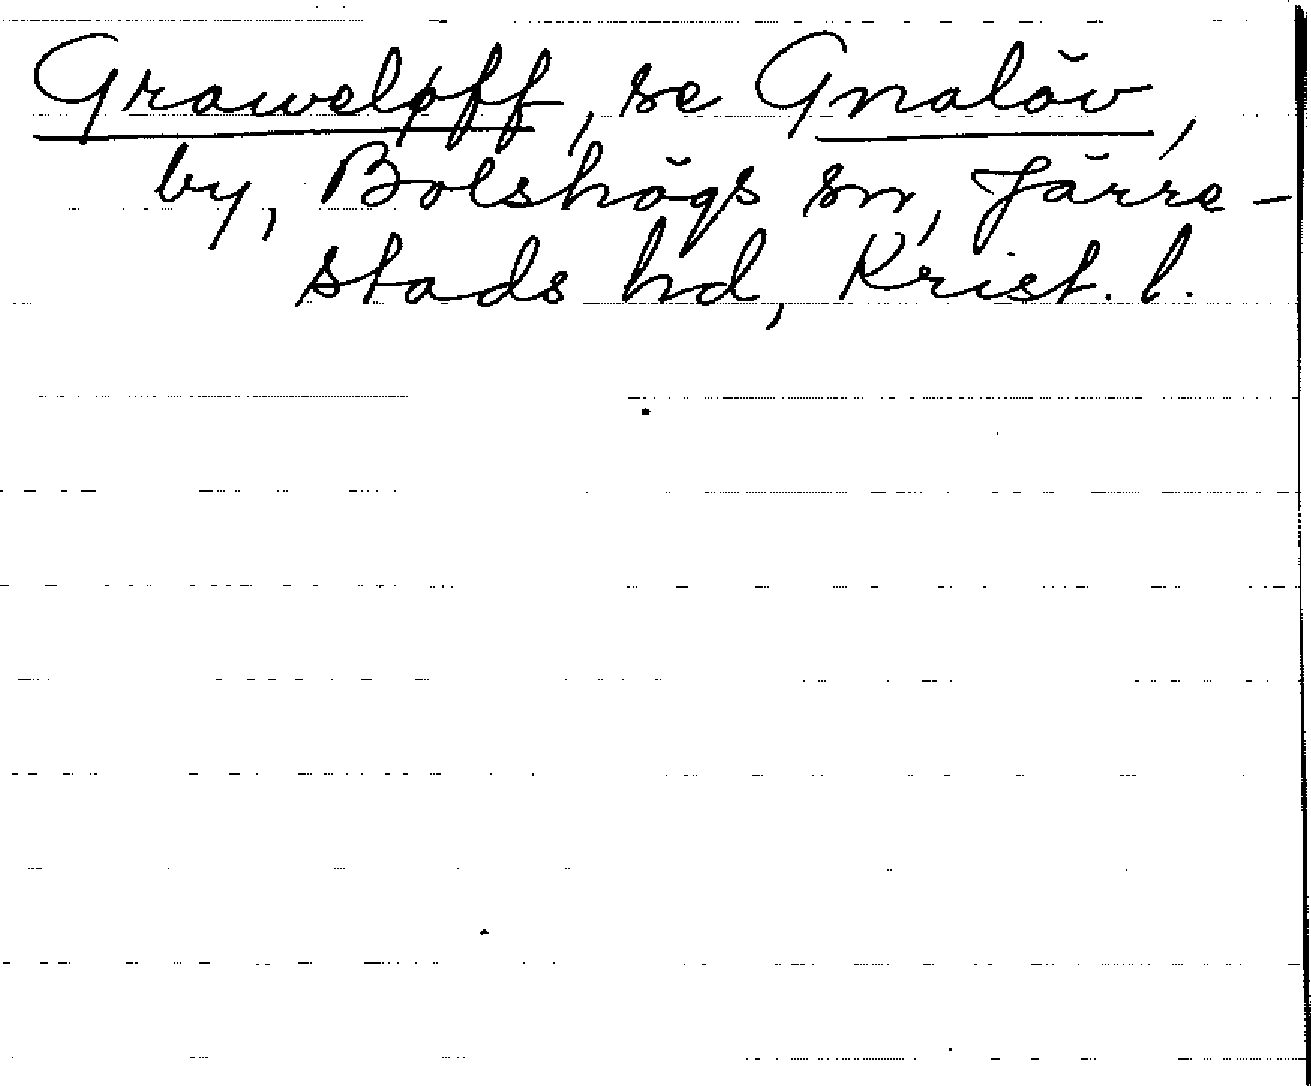 Graweløff, se Gnalöv,
by, Bolshögs sn, Järre-
stads hd, Krist. l.